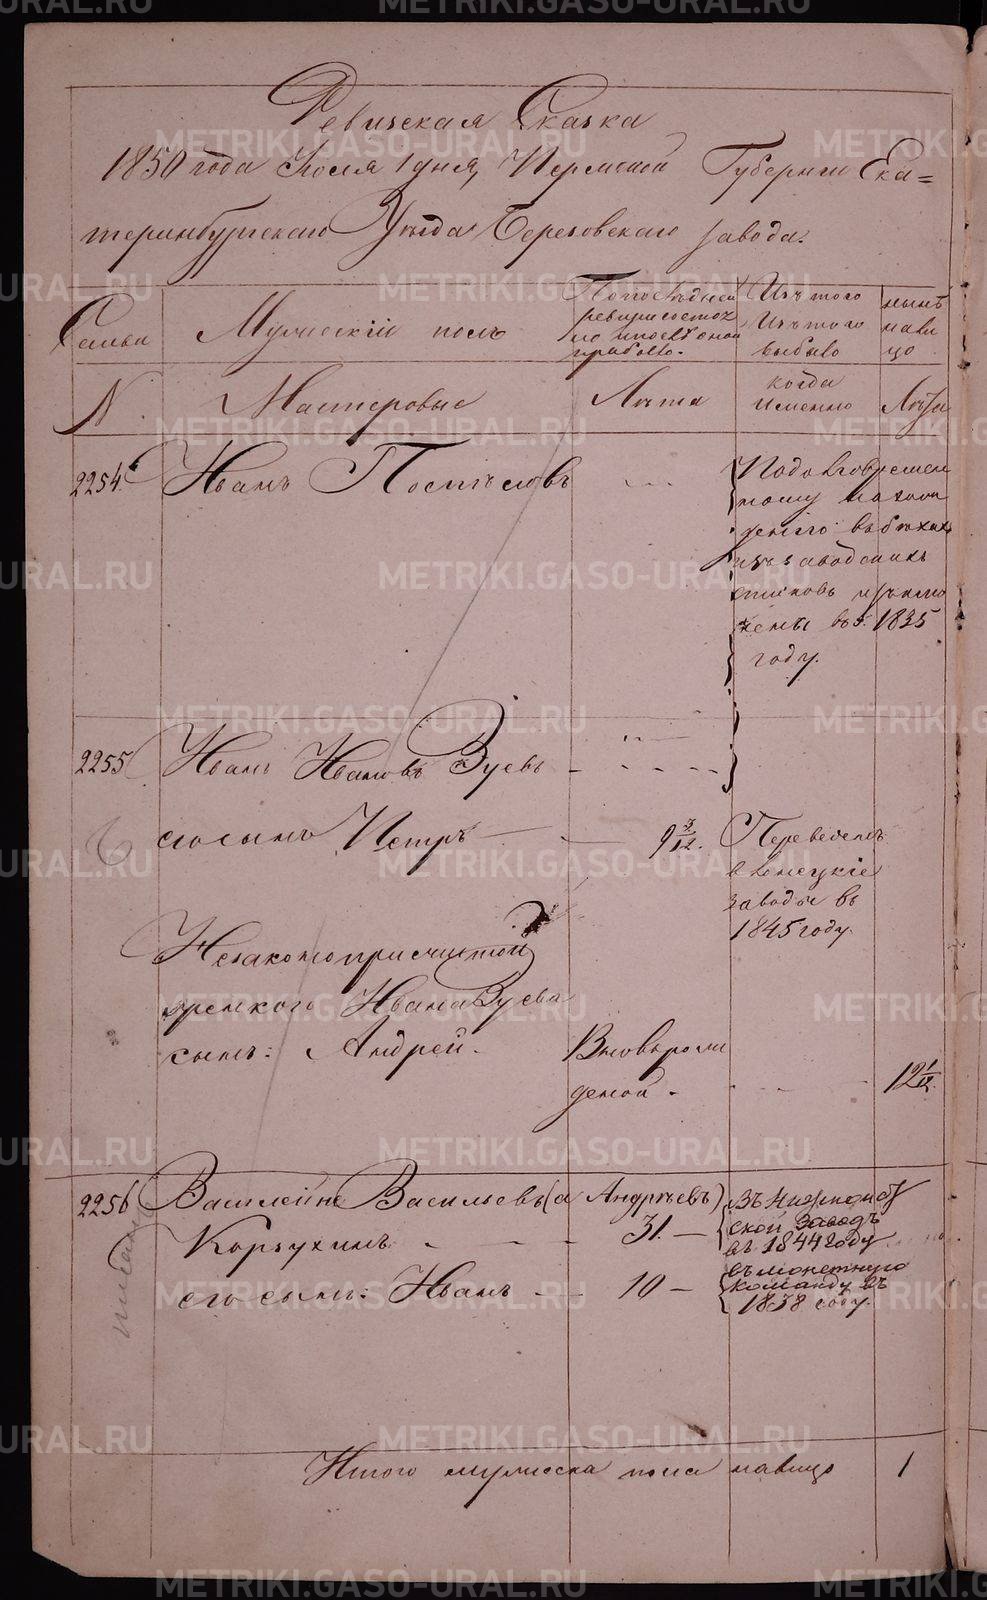 Ревизская Сказка
1850 года Июля 1 дня, Пермской Губернии Ека=
теринбургскаго Уѣзда Березовскаго завода.
Семьи
Мужескій полъ
По последней
ревизіи состоя
ло
Изъ того
Изъ того
выбыло
нынѣ
нали
цо
N
Мастеровые
Лѣта
когда
именно
Лѣта
2254.
Иванъ Поспѣловъ
По долговремен
ному нахож
денію въ бѣгах
изъ заводскихъ
списковъ исклю
чены въ 1835
году.
2255
Иванъ Ивановъ Зуевъ
его сынъ Петръ
9 /12.
Переведенъ
в
заводы въ
1845 году.
Незаконо
Ивана Зуева
сынъ: Андрей.
Вновьрож
деной.
12 1/12.
2256
Василей Васильевъ (а Андрѣевъ)
Корзухинъ
31.
въ
ской заводъ
въ 1844 году
его сынъ: Иванъ
10
въ монетную
команду въ
1838 году.
Итого мужеска пола налицо
1
METRIKI.GASO-URAL.RU